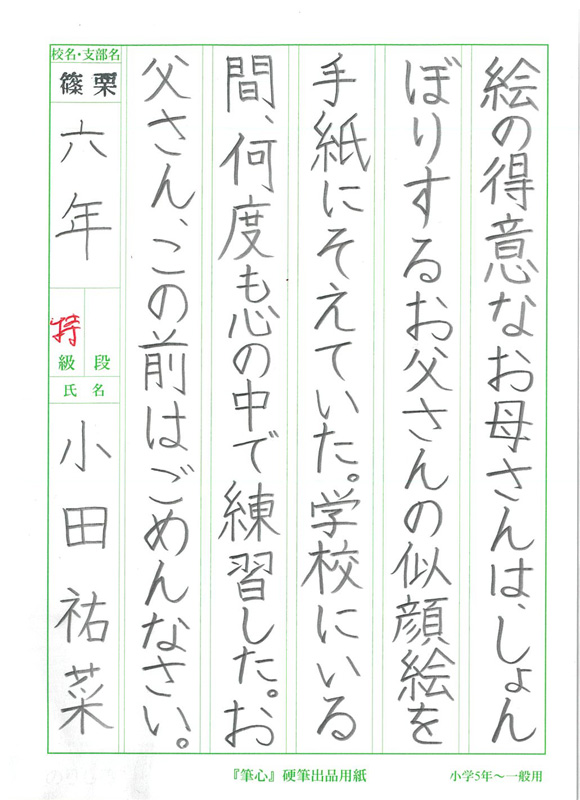 絵の得意なお母さんは、しょん
ぼりするお父さんの似顔絵を
手紙にそえていた。学校にいる
間、何度も心の中で練習した。お
父さん、この前はごめんなさい。
校名・支部名
篠栗
六年
特
級 段
氏名
小田祐菜
『筆心』硬筆出品用紙
小学5年〜一般用